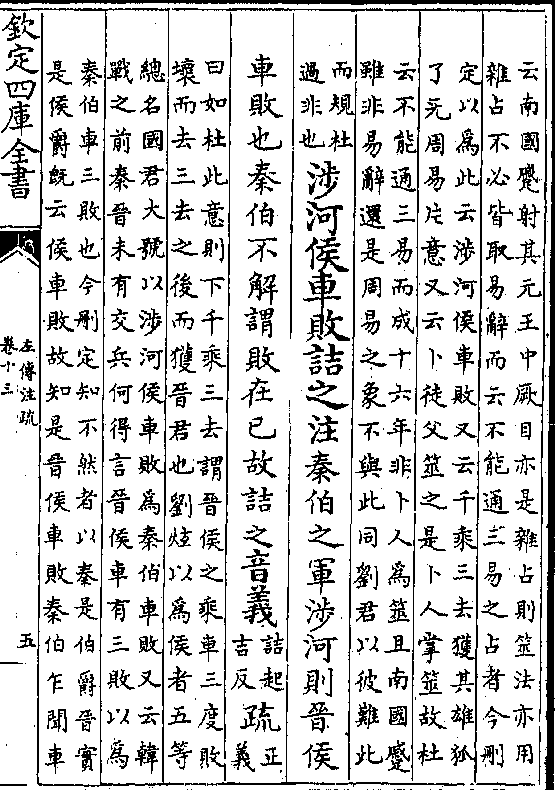 云南國蹙射其元王中厥目亦是雜占則筮法亦用
雜占不必皆取易辭而云不能通三易之占者今刪
定以為此云涉河侯車敗又云千乘三去獲其雄狐
了无周易片意又云卜徒父筮之是卜人掌筮故杜
云不能通三易而成十六年非卜人為筮且南國蹙
雖非易辭還是周易之象不與此同劉君以彼難此
而規杜
過非也
涉河侯車敗詰之注秦伯之軍涉河則晉侯
車敗也秦伯不解謂敗在已故詰之音義
詰起
吉反
疏
正
義
曰如杜此意則下千乘三去謂晉侯之乘車三度敗
壞而去三去之後而獲晉君也劉炫以為侯者五等
總名國君大號以涉河侯車敗為秦伯車敗又云韓
戰之前秦晉未有交兵何得言晉侯車有三敗以為
秦伯車三敗也今刪定知不然者以秦是伯爵晉實
是侯爵既云侯車敗故知是晉侯車敗秦伯乍聞車
欽定四庫全書
左傳注疏
卷十三
五